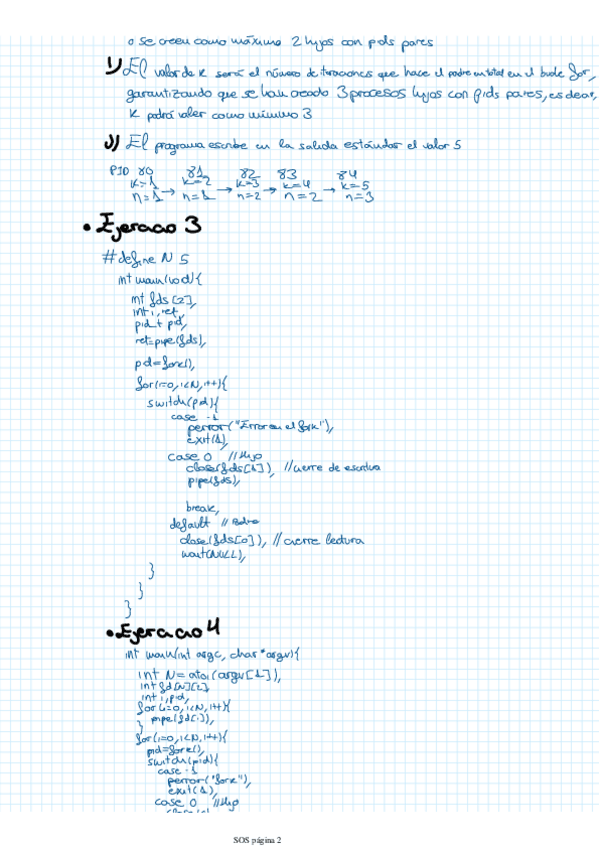 o se creen como máximo 2 hijos con pids pares
I) El valor de K será el número de iteraciones que hace el padre en total en el bucle for,
garantizando que se han creado 3 procesos hijos con pids pares, es decir,
K podrá valer como mínimo 3
J) El programa escribe en la salida estándar el valor 5
PID 80 81 82 83 84
k=1 k=2 k=3 k=4 k=5
n=1 → n=1 → n=2 → n=2 → n=3
• Ejercicio 3
#define N 5
int main(void){
int fds[2];
int i, ret;
pid_t pid;
ret=pipe(fds);
pid=fork();
for(i=0;i<N;i++){
switch(pid){
case -1
perror("Error en el fork");
exit(1);
case 0 //Hijo
close(fds[1]); //cierre de escritura
pipe(fds);
break;
default //Padre
close(fds[0]); //cierre lectura
wait(NULL);
}
}
}
• Ejercicio 4
int main(int argc, char *argv){
int N=atoi(argv[1]);
int fd[N][2]
int i,pid;
for(i=0;i<N;i++){
pipe(fd[i]);
}
for(i=0;i<N;i++){
pid=fork();
switch(pid){
case -1
perror("fork");
exit(1);
case 0 //Hijo
SOS página 2